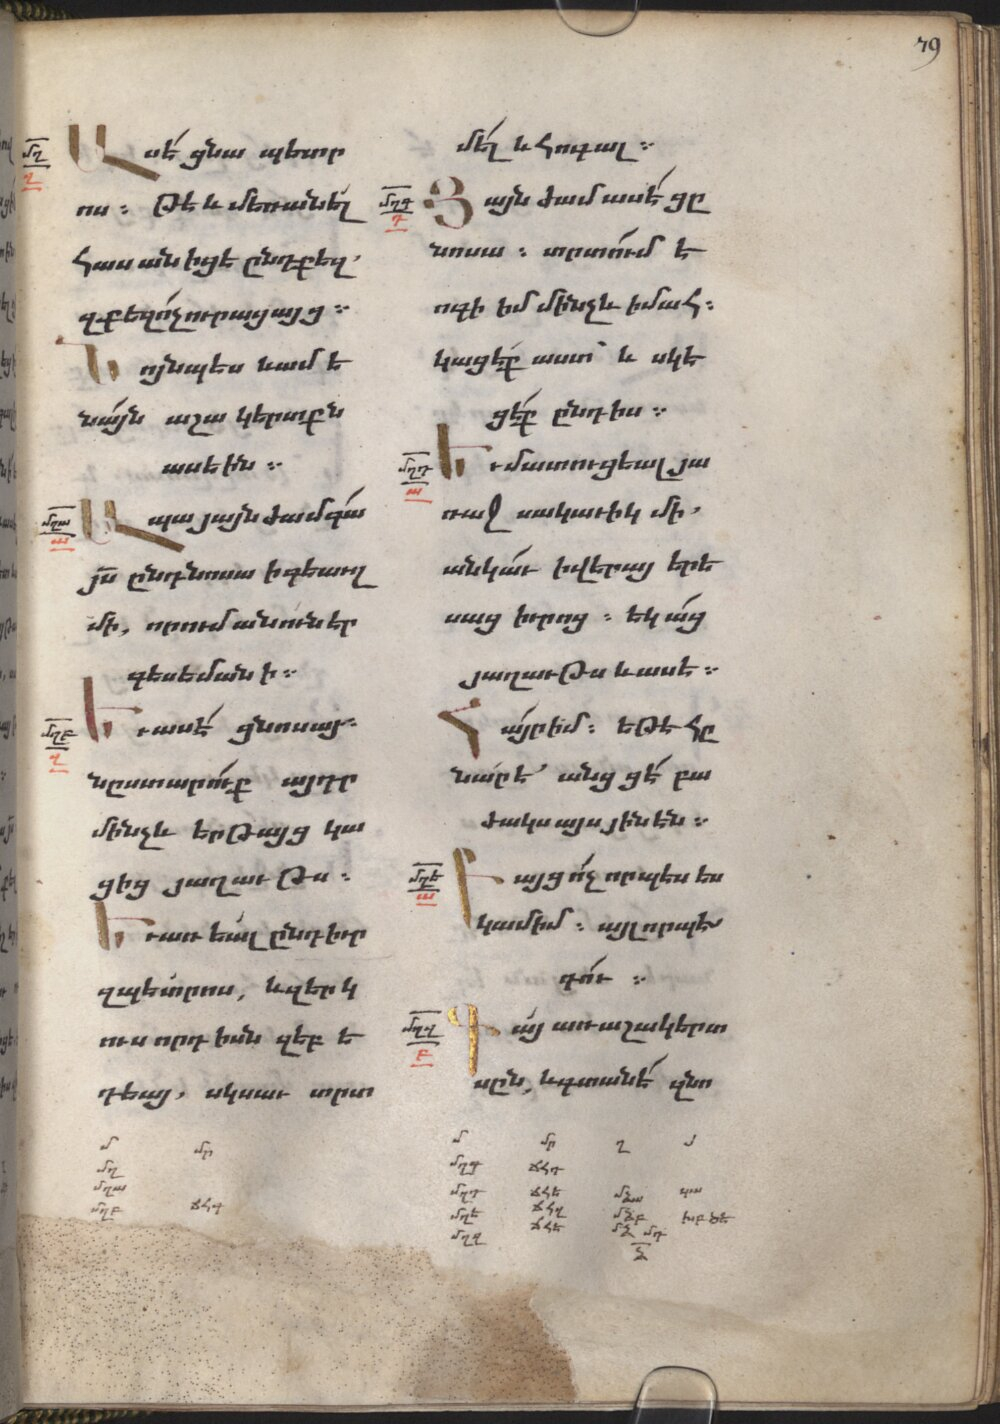 79
մղ
Ասէ ցնա պետր
ոս : Թե և մեռանել
հասանիցե ընդքեզ՝
զքեզոչուրացայց ։
Նոյնպես նամե
նայն աշակերտքն
ասեին ։
մղա
ա
Ապա յայնժամ գա
յս ընդնոսա իգեաւղ
մի, որում անուն եր
գեսեմանի ։
մղբ
Եւ ասէ ցնոսայ ։
նըստարուք այդը
մինչև երթայց կա
ցից յաղաւթս ։
Եւ առեալ ընդիւր
զպետրոս, և զերկ
ուս որդիսն զեբե
դեայ, սկսաւ տրտ
մել և հոգալ ։
մղգ
դ
Յայնժամ ասէ ցը
նոսա : տրտում է
ոգի իմ մինչև իմահ :
կացէք աստ՝ և սկե
ցէք ընդիս ։
մղդ
ա
Եւ մատուցեալ յա
ռաջ սակաւիկ մի՝
անկաւ իվերայ երե
սաց իւրոց : եկաց
յաղաւթս և ասե ։
Հայր իմ : եթե հը
նար է՝ անցցէ բա
ժակս այս յինէն ։
մղե
ա
Բայց ոչ որպես ես
կամիմ : այլ որպես
դու ։
մղզ
բ
Գայ առ աշակերտ
սըն, և գտանէ զնո
մ մր
մղ
մղա
մղբ ճհգ
մ մր ղ յ
մղգ ճհդ
մղդ ճհե
մղե ճհզ
մղզ ճհե